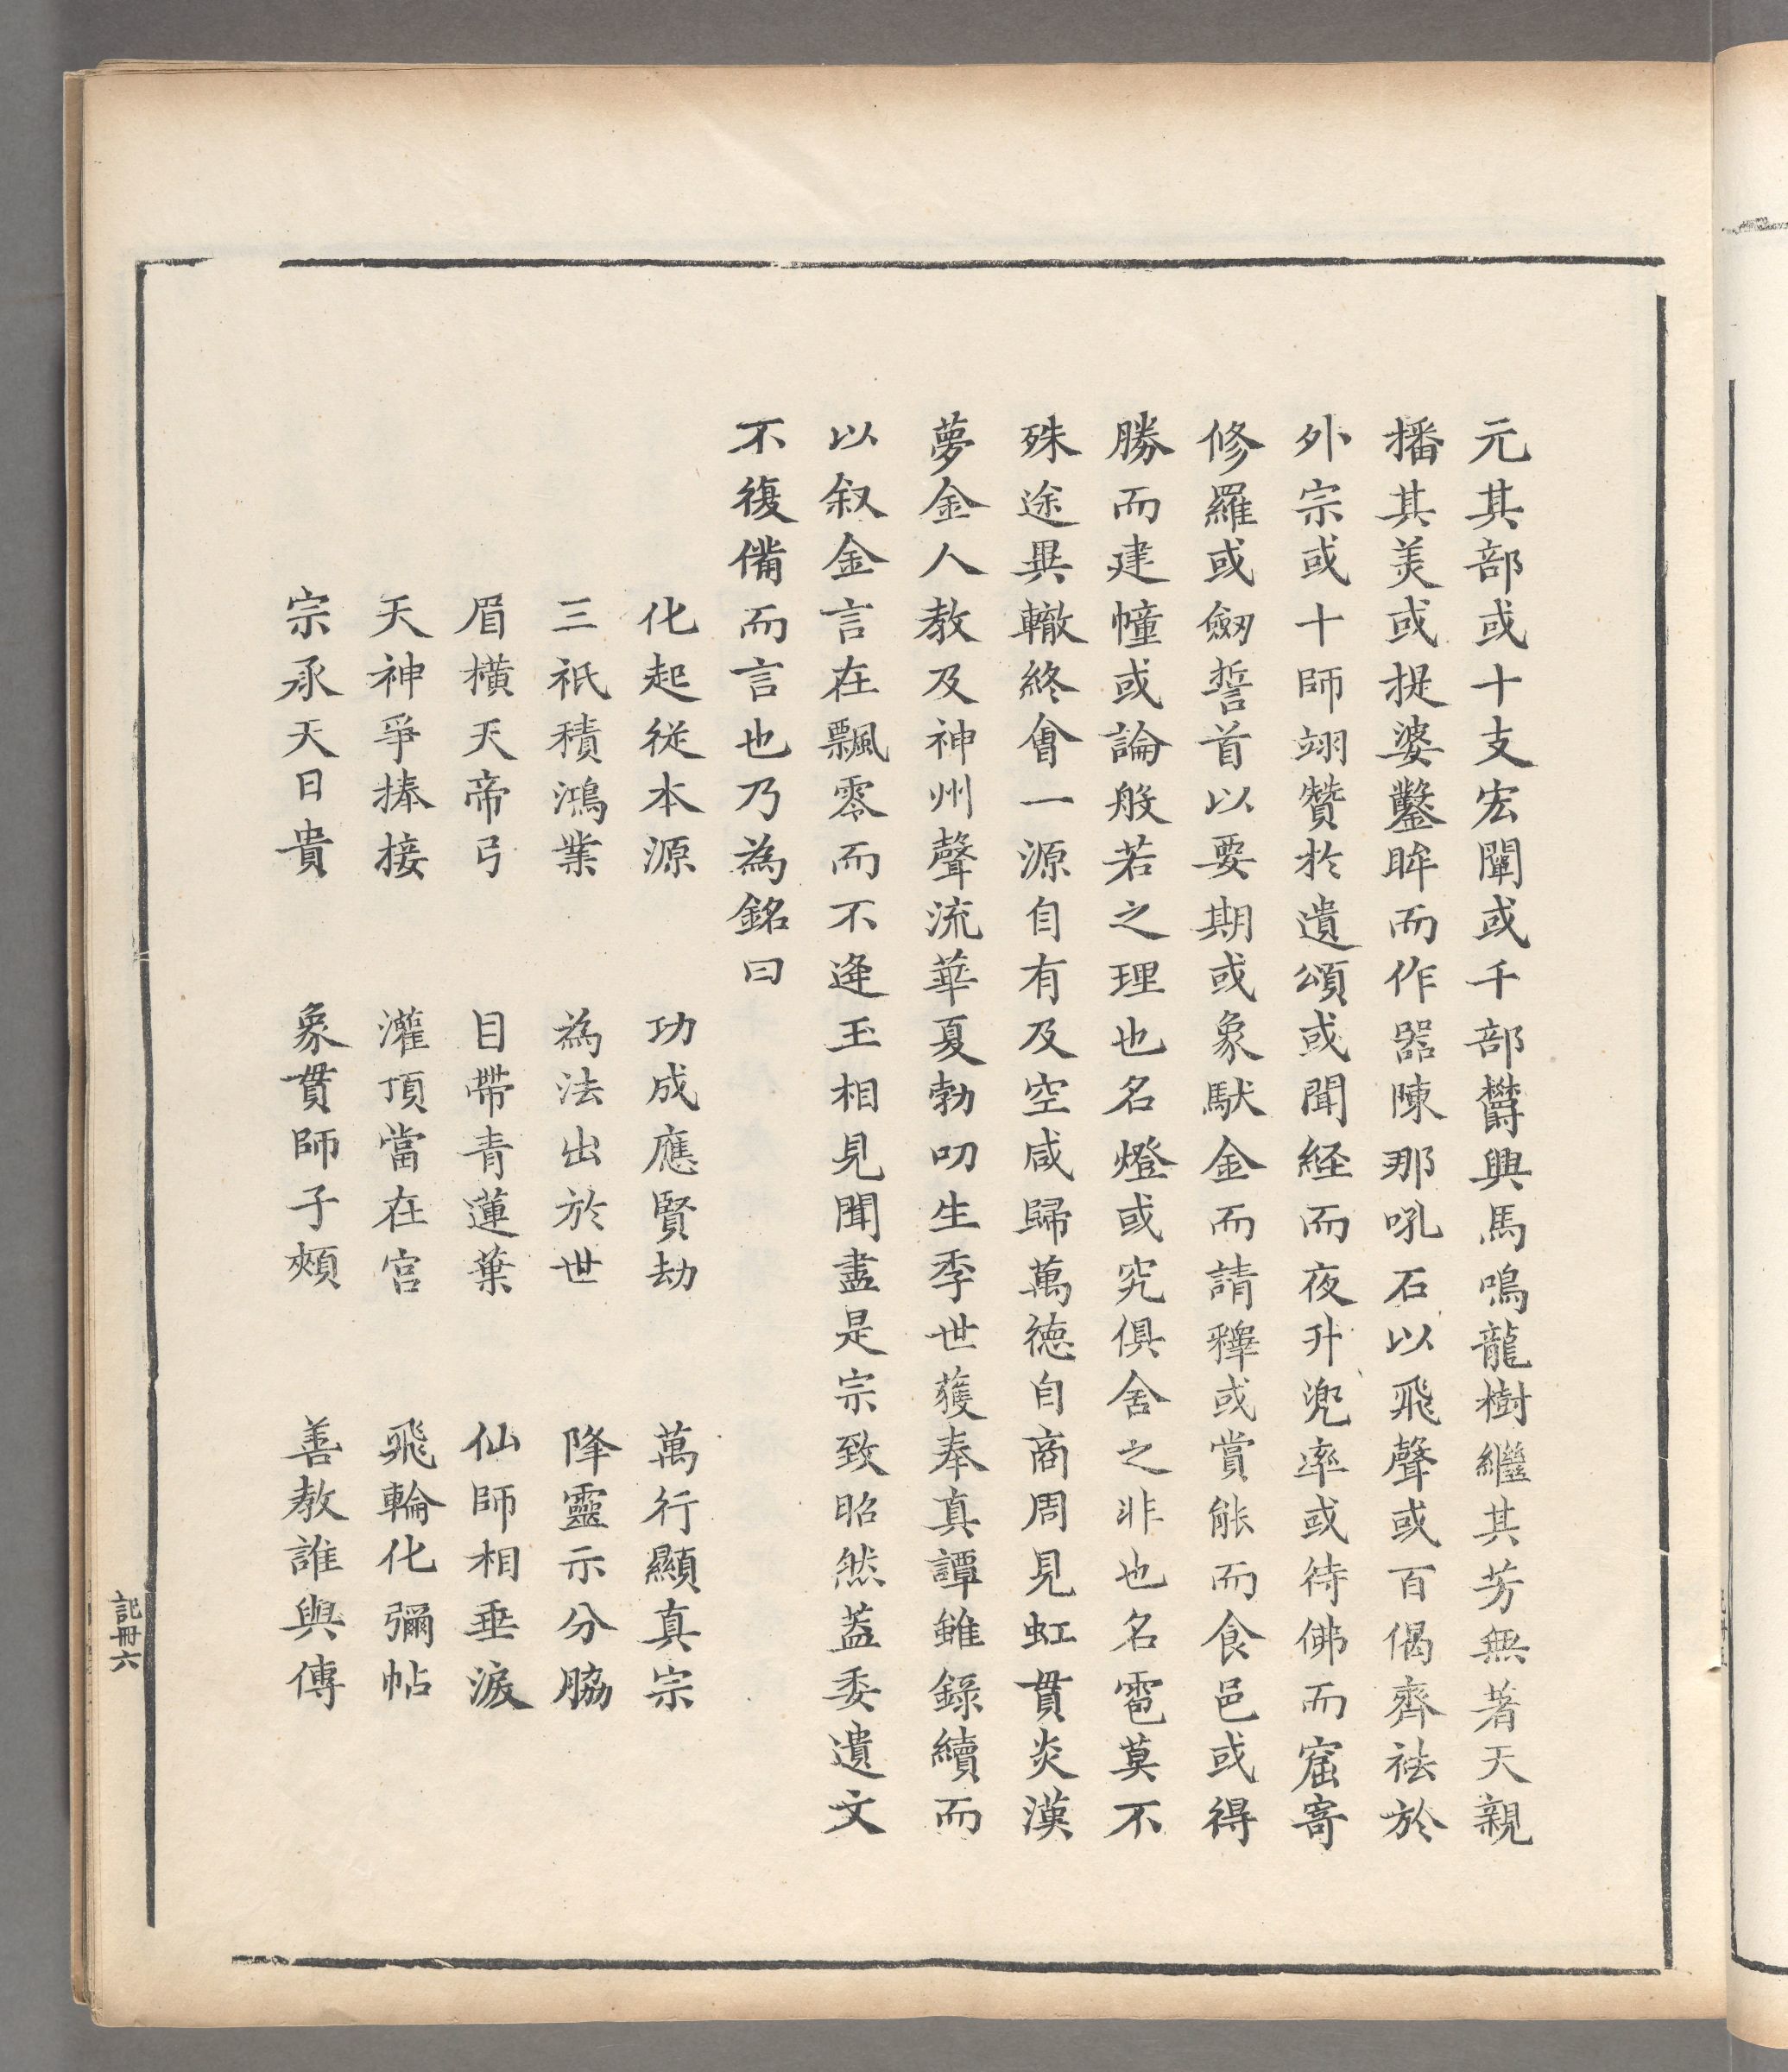 元其部或十支宏闡或千部欝興馬鳴龍樹繼其芳無著天親
播其羙或提婆鑿眸而作器陳那吼石以飛聲或百偈齊祛於
外宗或十師翊贊於遺頌或聞経而夜升兠率或待佛而窟寄
修羅或劒誓首以要期或象馱金而請釋或賞能而食邑或得
勝而建幢或論般若之理也名燈或究俱舍之非也名雹莫不
殊途異轍終會一源自有及空咸歸萬徳自商周見虹貫炎漢
夢金人教及神州聲流華夏勃叨生季世獲奉真譚雖錄續而
以叙金言在飄零而不逢玉相見聞盡是宗致昭然葢委遺文
不復備而言也乃為銘曰
化起從本源 功成應賢劫 萬行顯真宗
三祇積鴻業 為法出於世 降靈示分脇
眉橫天帝弓 目帶青蓮葉 仙師相垂淚
天神爭捧接 灌頂當在宮 飛輪化彌帖
宗承天日貴 象貫師子頰 善教誰與傳
記冊六